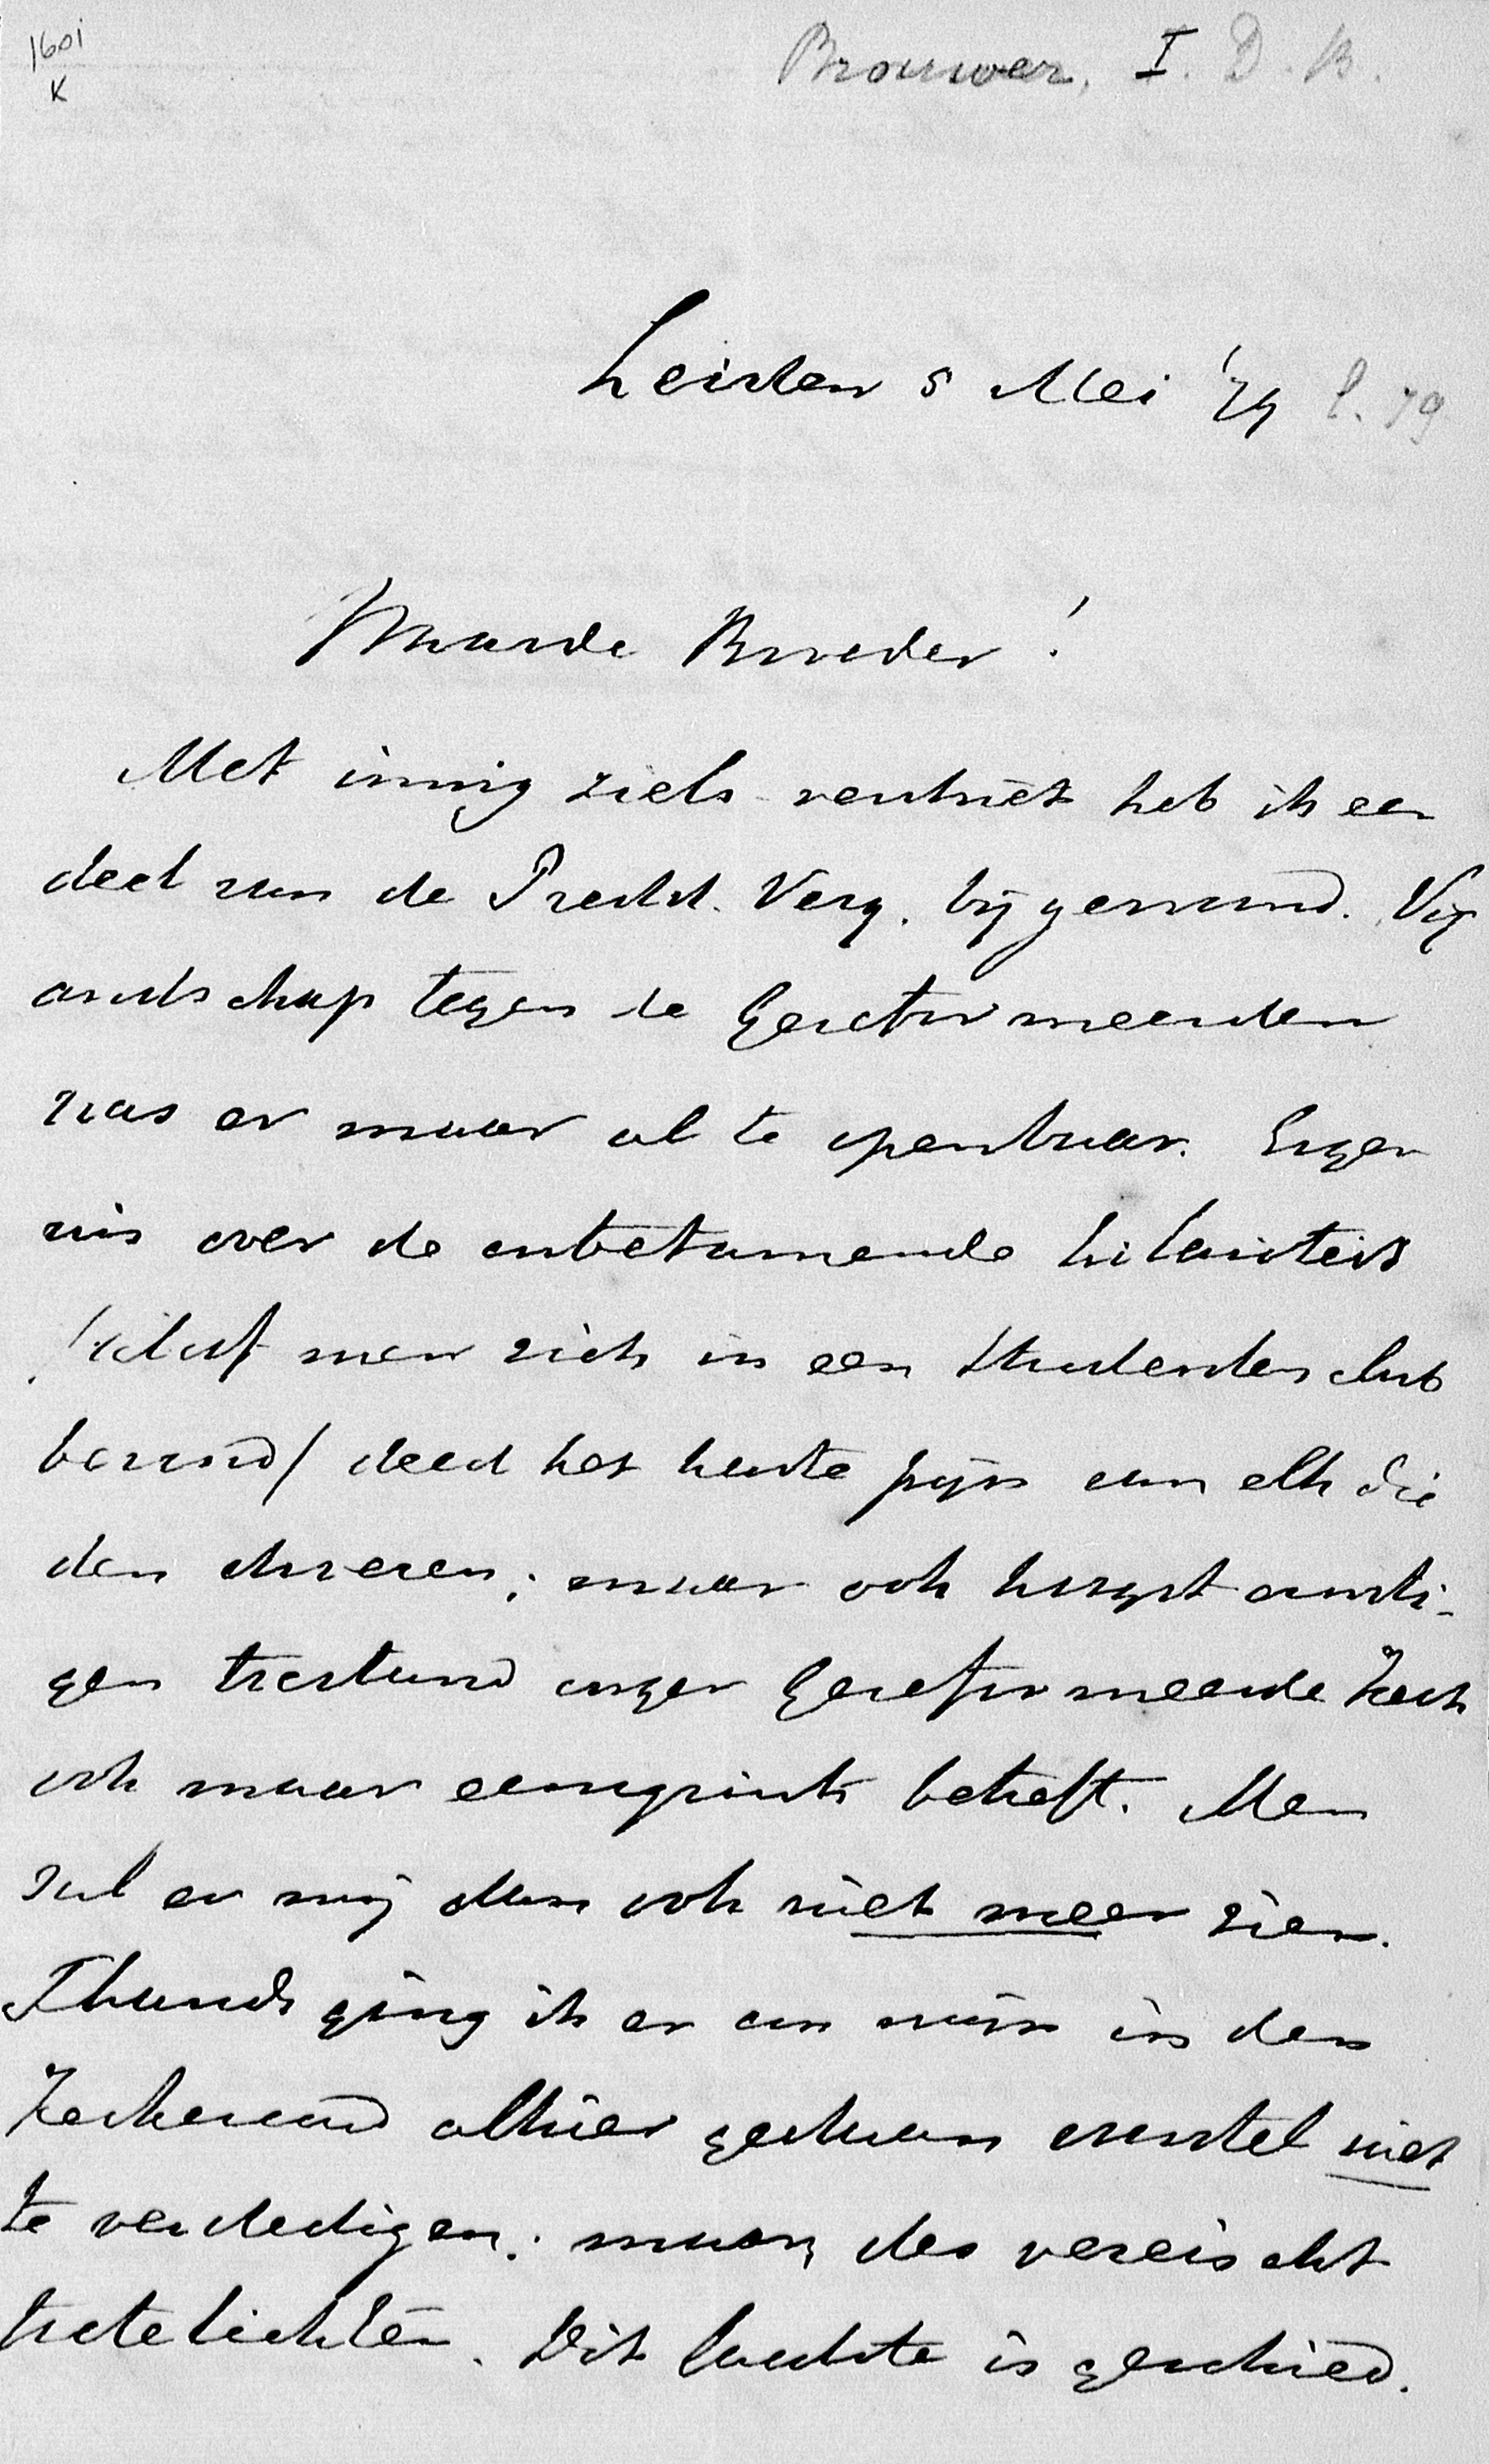 1601
K
Brouwer, I. D. B.
Leiden 5 Mei '79 l. 79
Waarde Broeder!
Met innig ziels-verdriet heb ik een
deel van de Predik. Verg. bijgewoond. Vij
andschap tegen de Gereformeerden
was er maar al te openbaar. Erger
nis over de onbetamende hilariteit
men zich in een studenten club
deed het harte pijn aan elk die
den maar ook hoogst ernsti-
gen toestand onzer Gereformeerde Kerk
ook maar eenigzints beheft. Men
zal er mij dan ook niet meer zien.
Thands ging ik er om mijn in den
Kerkeraad alhier gedaan voorstel niet
te verdedigen; maar, des vereischt
toetelichten. Dit laatste is geschied.